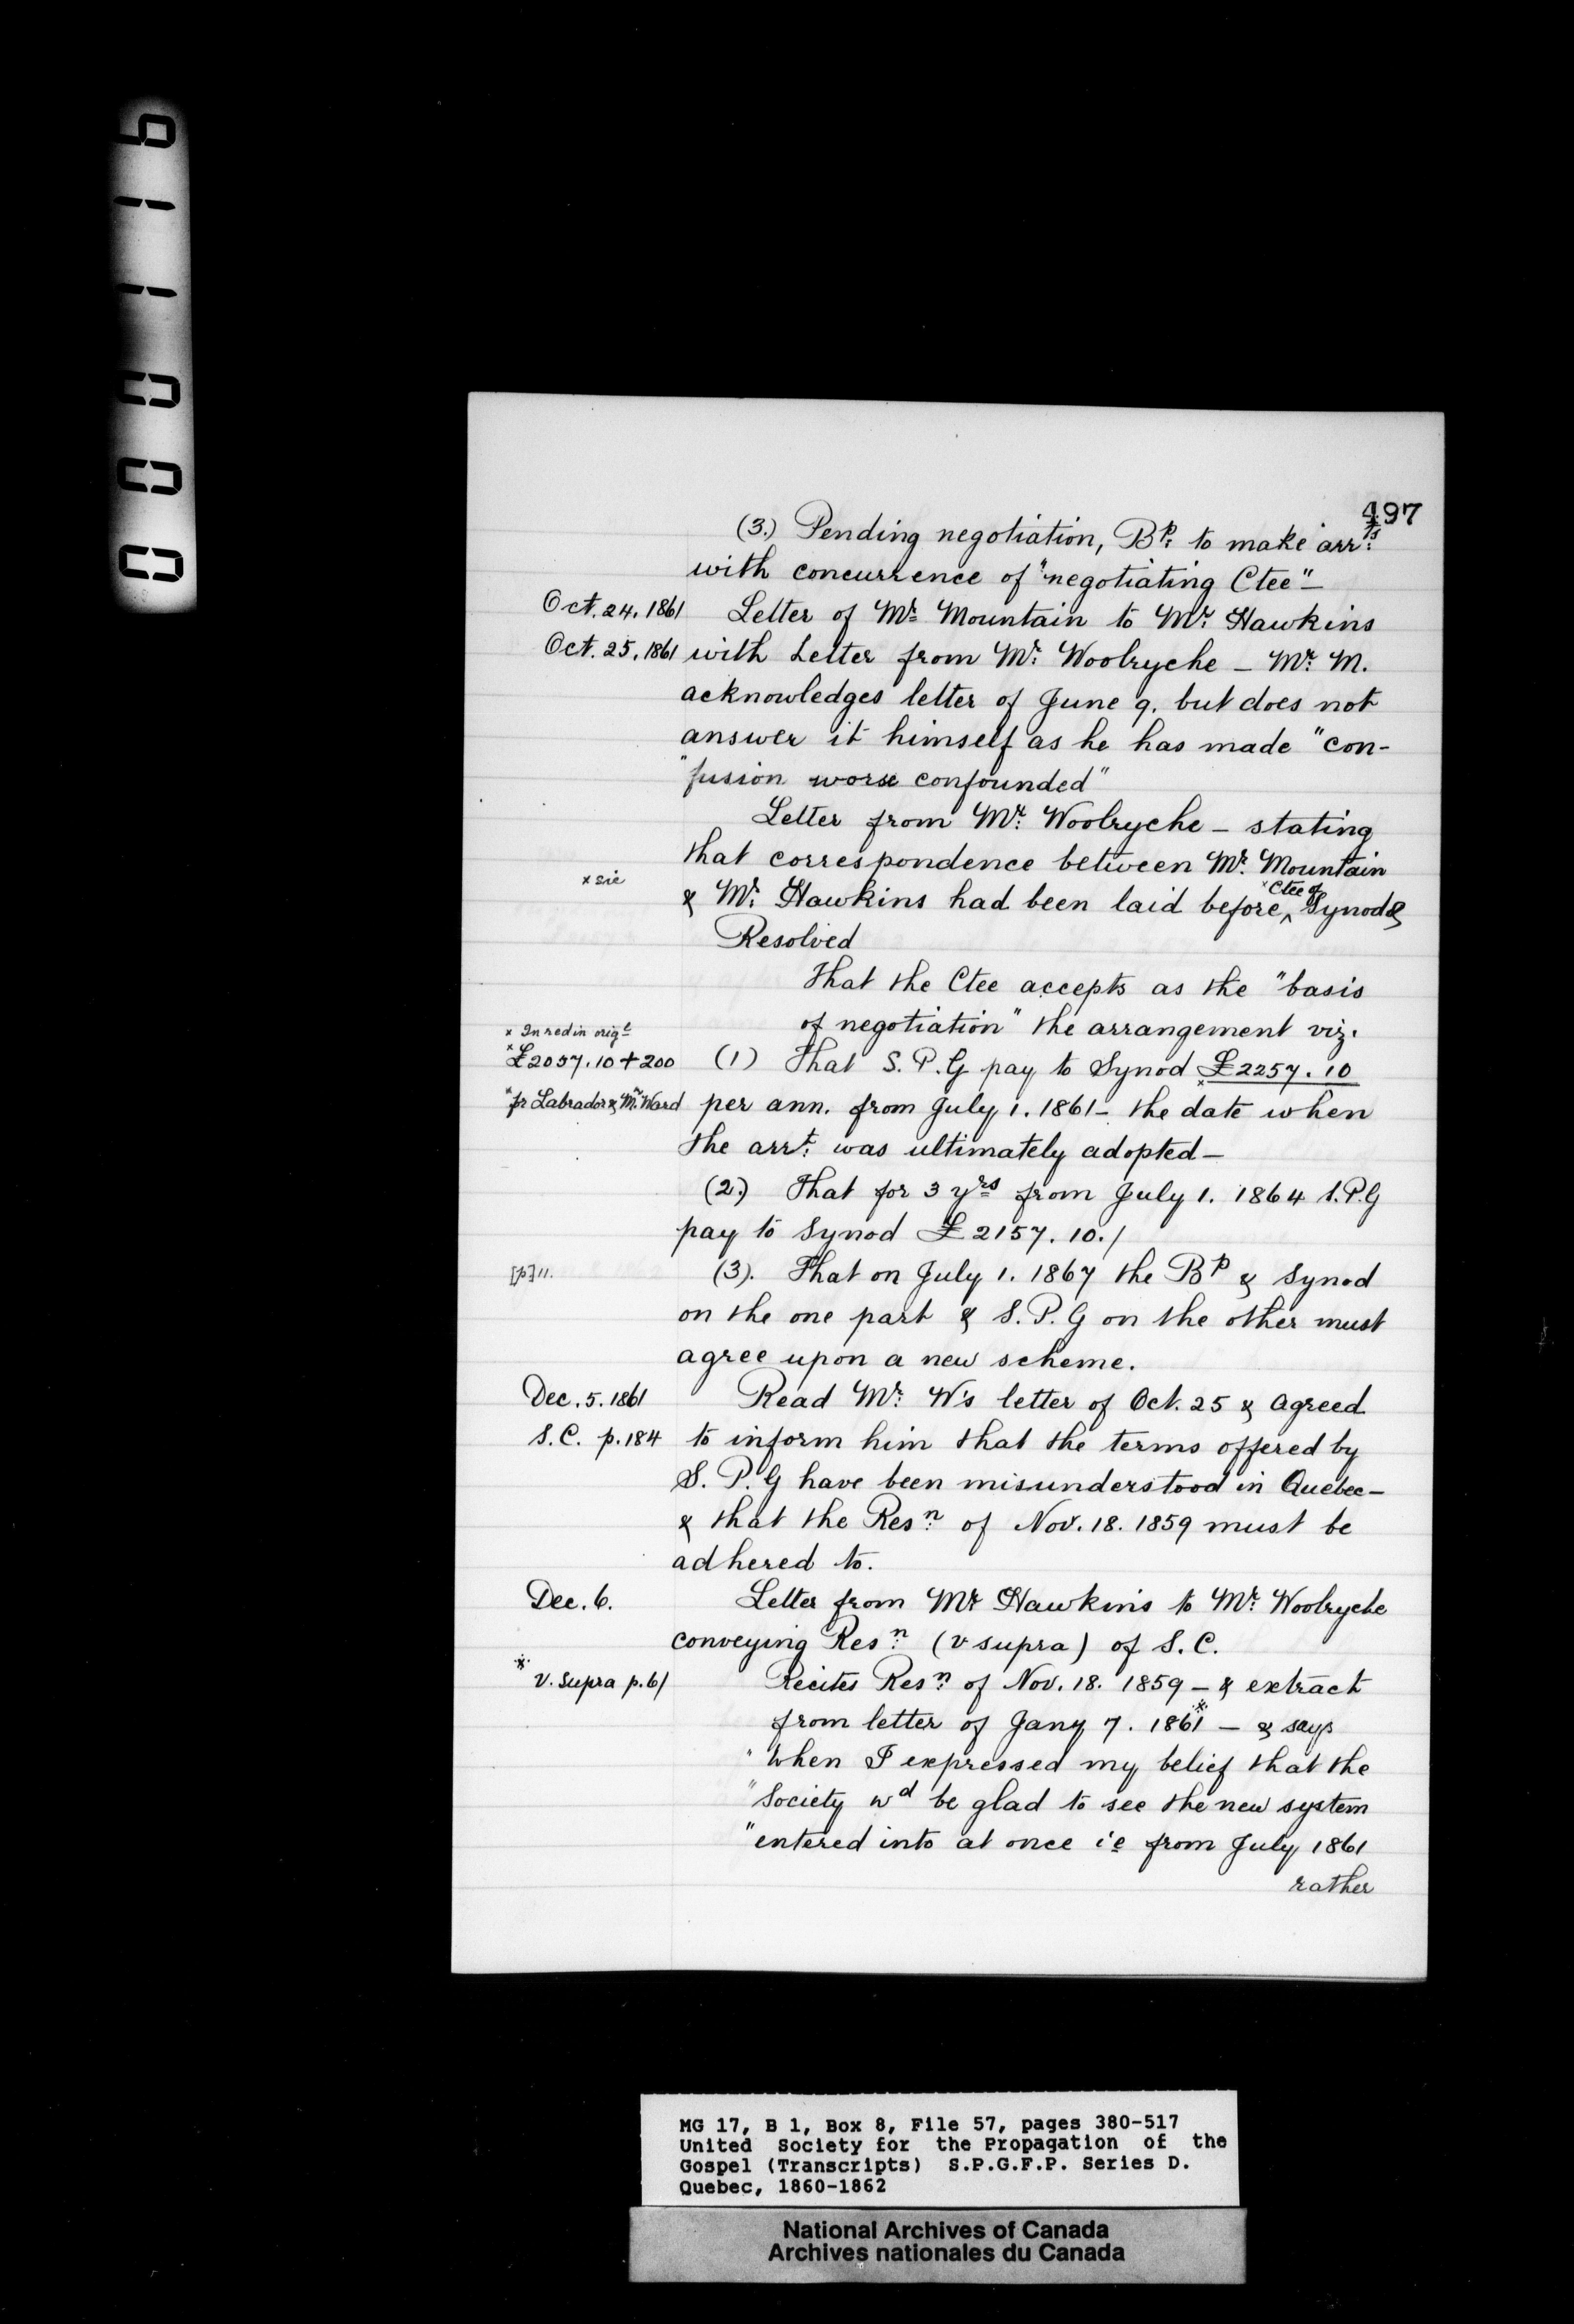 000116
497
(3.) Pending negotiation, Bp. to make arrts.
with concurrence of "negotiating Ctee" –
Oct. 24. 1861 Letter of Mr. Mountain to Mr. Hawkins
Oct. 25. 1861 with Letter from Mr. Woolryche – Mr. M.
acknowledges letter of June 9. but does not
answer it himself as he has made "con-
"fusion worse confounded"
Letter from Mr. Woolryche – stating
that correspondence between Mr. Mountain
x sic & Mr. Hawkins had been laid before ^ x Ctee of Synod &
Resolved
That the Ctee accepts as the "basis
x In red in origl of negotiation" the arrangement viz.
x £2057.10 + 200 (1) That S.P.G pay to Synod x £2257.10
x fr Labrador & Mr. Ward per ann. from July 1. 1861 – the date when
the arrt. was ultimately adopted –
(2.) That for 3 yrs from July 1. 1864 S.P.G
pay to Synod £2157.10./
[p] 11. (3). That on July 1. 1867 the Bp & Synod
on the one part & S.P.G on the other must
agree upon a new scheme.
Dec. 5. 1861 Read Mr. W's letter of Oct. 25 & agreed
S.C. p. 184 to inform him that the terms offered by
S.P.G have been misunderstood in Quebec –
& that the Resn. of Nov. 18. 1859 must be
adhered to.
Dec. 6. Letter from Mr Hawkins to Mr. Woolryche
conveying Resn. (v supra) of S.C.
※ v. supra p. 6/ Recites Resn. of Nov. 18. 1859 – & extract
from letter of Jany 7. 1861 ※ – & says
"When I expressed my belief that the
"Society wd be glad to see the new system
"entered into at once ie from July 1861
rather
MG 17, B 1, Box 8, File 57, pages 380-517
United Society for the Propagation of the
Gospel (Transcripts) S.P.G.F.P. Series D.
Quebec, 1860-1862
National Archives of Canada
Archives nationales du Canada